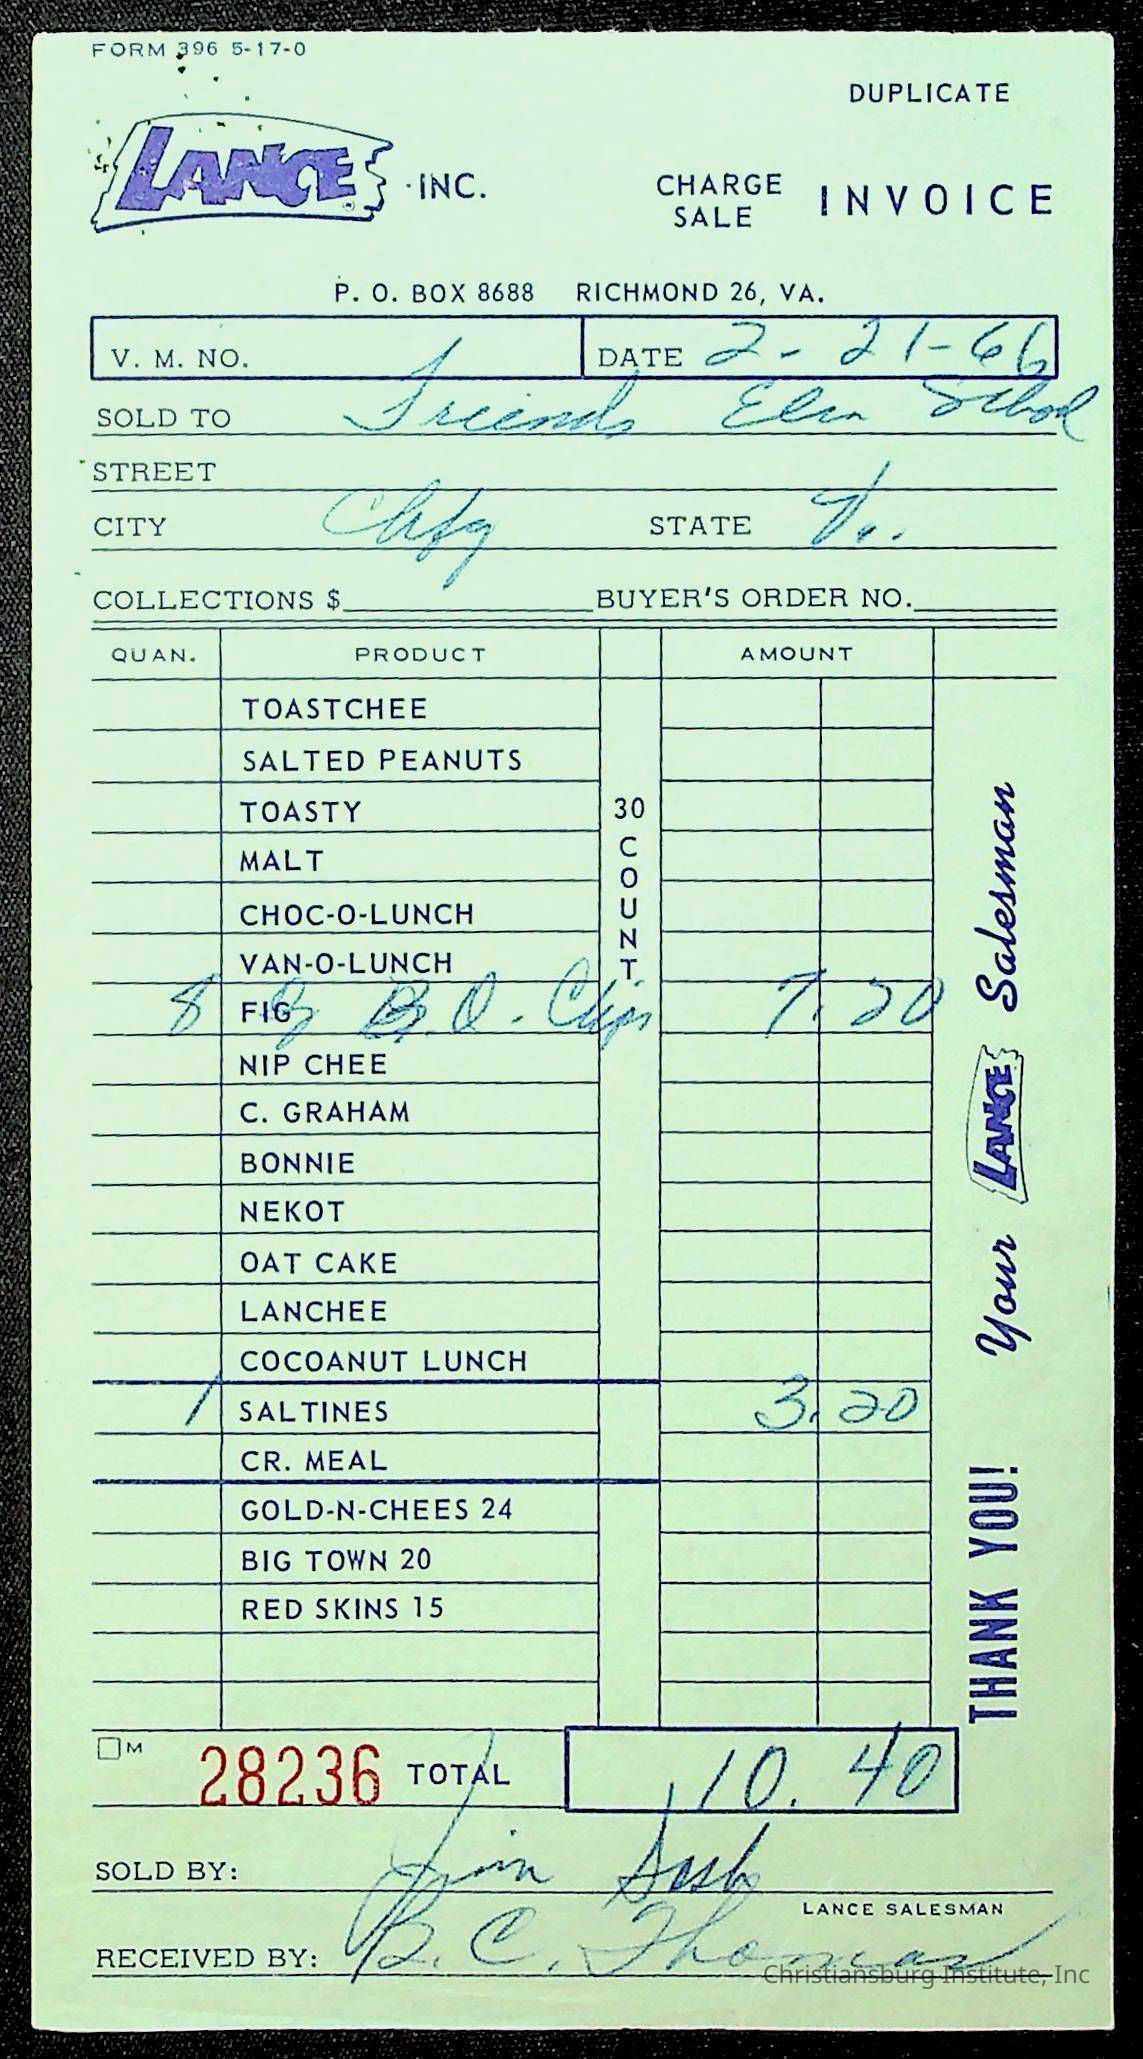 FORM 396 5-17-0
DUPLICATE
LANCE ® INC.
CHARGE SALE INVOICE
P. O. BOX 8688 RICHMOND 26, VA.
V. M. NO. DATE 2-21-66
SOLD TO Friends Elem School
STREET
CITY Chfg STATE Va.
COLLECTIONS $ BUYER'S ORDER NO.
QUAN. PRODUCT AMOUNT
TOASTCHEE
SALTED PEANUTS
TOASTY
MALT
CHOC-O-LUNCH
VAN-O-LUNCH
30 COUNT
8 FIG B.Q. Chips 7.20
NIP CHEE
C. GRAHAM
BONNIE
NEKOT
OAT CAKE
LANCHEE
COCOANUT LUNCH
1 SALTINES 3.20
CR. MEAL
GOLD-N-CHEES 24
BIG TOWN 20
RED SKINS 15
Your LANCE Salesman
THANK YOU!
M 28236 TOTAL 10.40
SOLD BY: Jim
LANCE SALESMAN
RECEIVED BY: B. C. Thomas
Christiansburg Institute, Inc